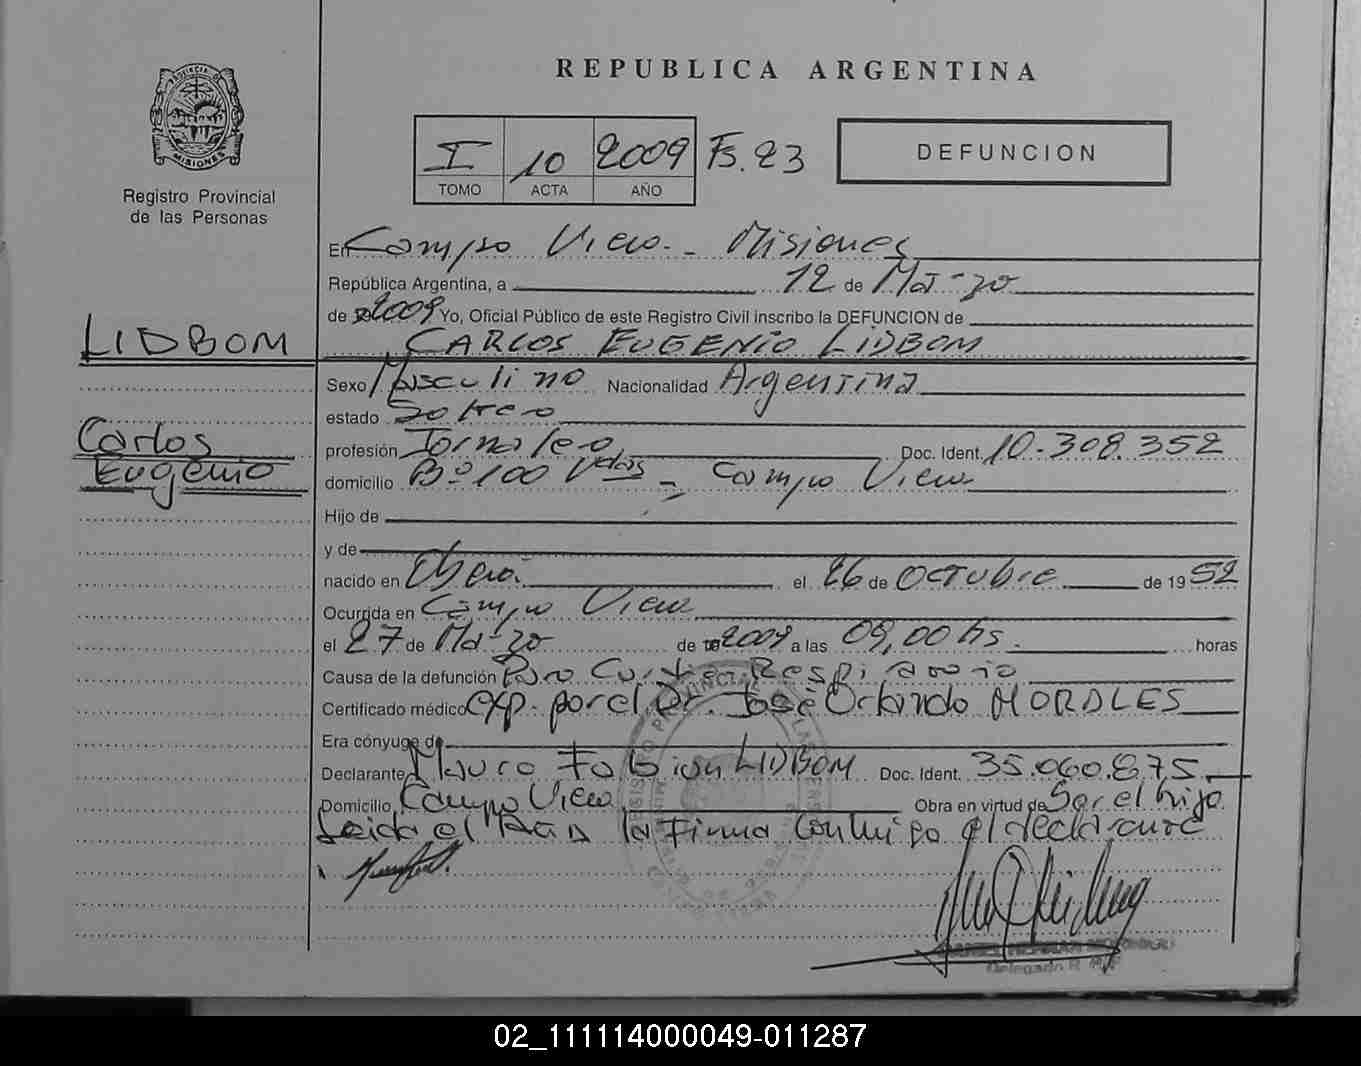 REPUBLICA ARGENTINA
PROVINCIA DE
MISIONES
Registro Provincial
de las Personas
I 10 2009 Fs. 23
TOMO ACTA AÑO
DEFUNCION
En Campo Viera - Misiones
República Argentina, a 12 de Marzo
de 2009 Yo, Oficial Público de este Registro Civil inscribo la DEFUNCION de
LIDBOM
CARLOS EUGENIO LIDBOM
Sexo Masculino Nacionalidad Argentina
estado Soltero
Carlos
Eugenio
profesión Jornalero Doc. Ident. 10.308.352
domicilio Bº 100 Vdas - Campo Viera
Hijo de
y de
nacido en Oberá. el 26 de Octubre de 1952
Ocurrida en Campo Viera
el 27 de Marzo de 2009 a las 09,00 hs. horas
Causa de la defunción Paro Cardio Respiratorio
Certificado médico exp. por el Dr. José Orlando MORALES
Era cónyuge de
Declarante Mauro Fabian LIDBOM Doc. Ident. 35.060.875
Domicilio Campo Viera Obra en virtud de Ser el hijo
Leida el Acta la Firma Conmigo el declarante
Delegado R. P. P.
02_111114000049-011287